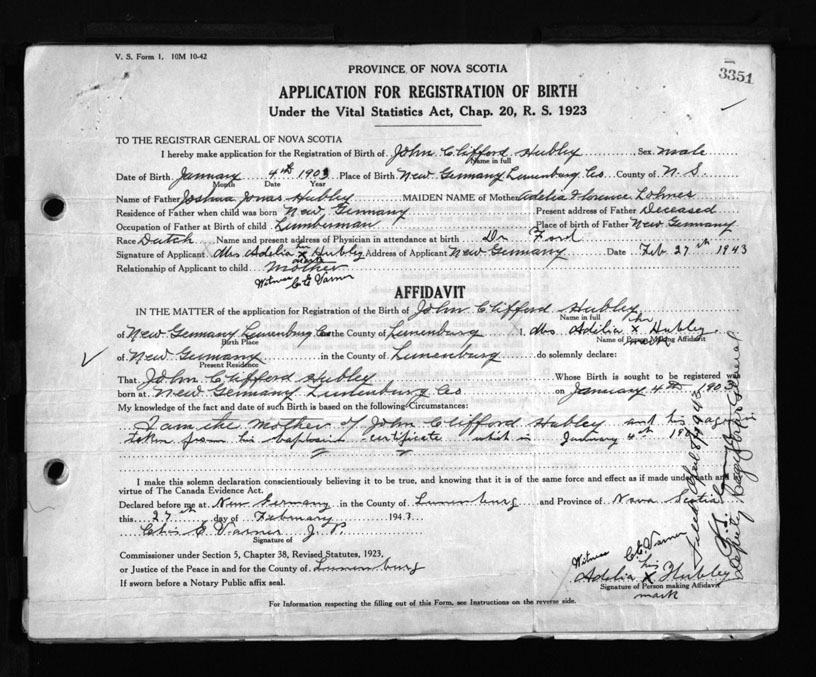 V. S. Form 1. 10M 10-42
3351
PROVINCE OF NOVA SCOTIA
APPLICATION FOR REGISTRATION OF BIRTH
Under the Vital Statistics Act, Chap. 20, R. S. 1923
TO THE REGISTRAR GENERAL OF NOVA SCOTIA
I hereby make application for the Registration of Birth of John Clifford Hubley Sex male
Name in full
Date of Birth January 4th 1903 Place of Birth New Germany Lunenburg Co County of N. S.
Month Date Year
Name of Father Joshua Jonas Hubley MAIDEN NAME of Mother Adelia Florence Lohnes
Residence of Father when child was born New Germany Present address of Father Deceased
Occupation of Father at Birth of child Lumberman Place of birth of Father New Germany
Race Dutch Name and present address of Physician in attendance at birth Dr Ford
Signature of Applicant Mrs Adelia X Hubley Address of Applicant New Germany Date Feb 27th 1943
Relationship of Applicant to child mother
Witness C E Varner
AFFIDAVIT
IN THE MATTER of the application for Registration of the Birth of John Clifford Hubley
Name in full
of New Germany Lunenburg Co in the County of Lunenburg I, Mrs Adelia X Hubley
Birth Place Name of Person Making Affidavit
of New Germany in the County of Lunenburg do solemnly declare:
Present Residence
That John Clifford Hubley Whose Birth is sought to be registered was
born at New Germany Lunenburg Co on January 4th 190
My knowledge of the fact and date of such Birth is based on the following Circumstances:
I am the mother of John Clifford Hubley and his age
taken from his baptismal certificate which is January 4th
I make this solemn declaration conscientiously believing it to be true, and knowing that it is of the same force and effect as if made under oath and
virtue of The Canada Evidence Act.
Declared before me at New Germany in the County of Lunenburg and Province of Nova Scotia
this 27th day of February 1943
Chas E Varner J. P.
Signature of
Commissioner under Section 5, Chapter 38, Revised Statutes, 1923,
or Justice of the Peace in and for the County of Lunenburg
If sworn before a Notary Public affix seal.
Witness C E Varner
his
Adelia X Hubley
Signature of Person making Affidavit
mark
For Information respecting the filling out of this Form, see Instructions on the reverse side.
Deputy Registrar General